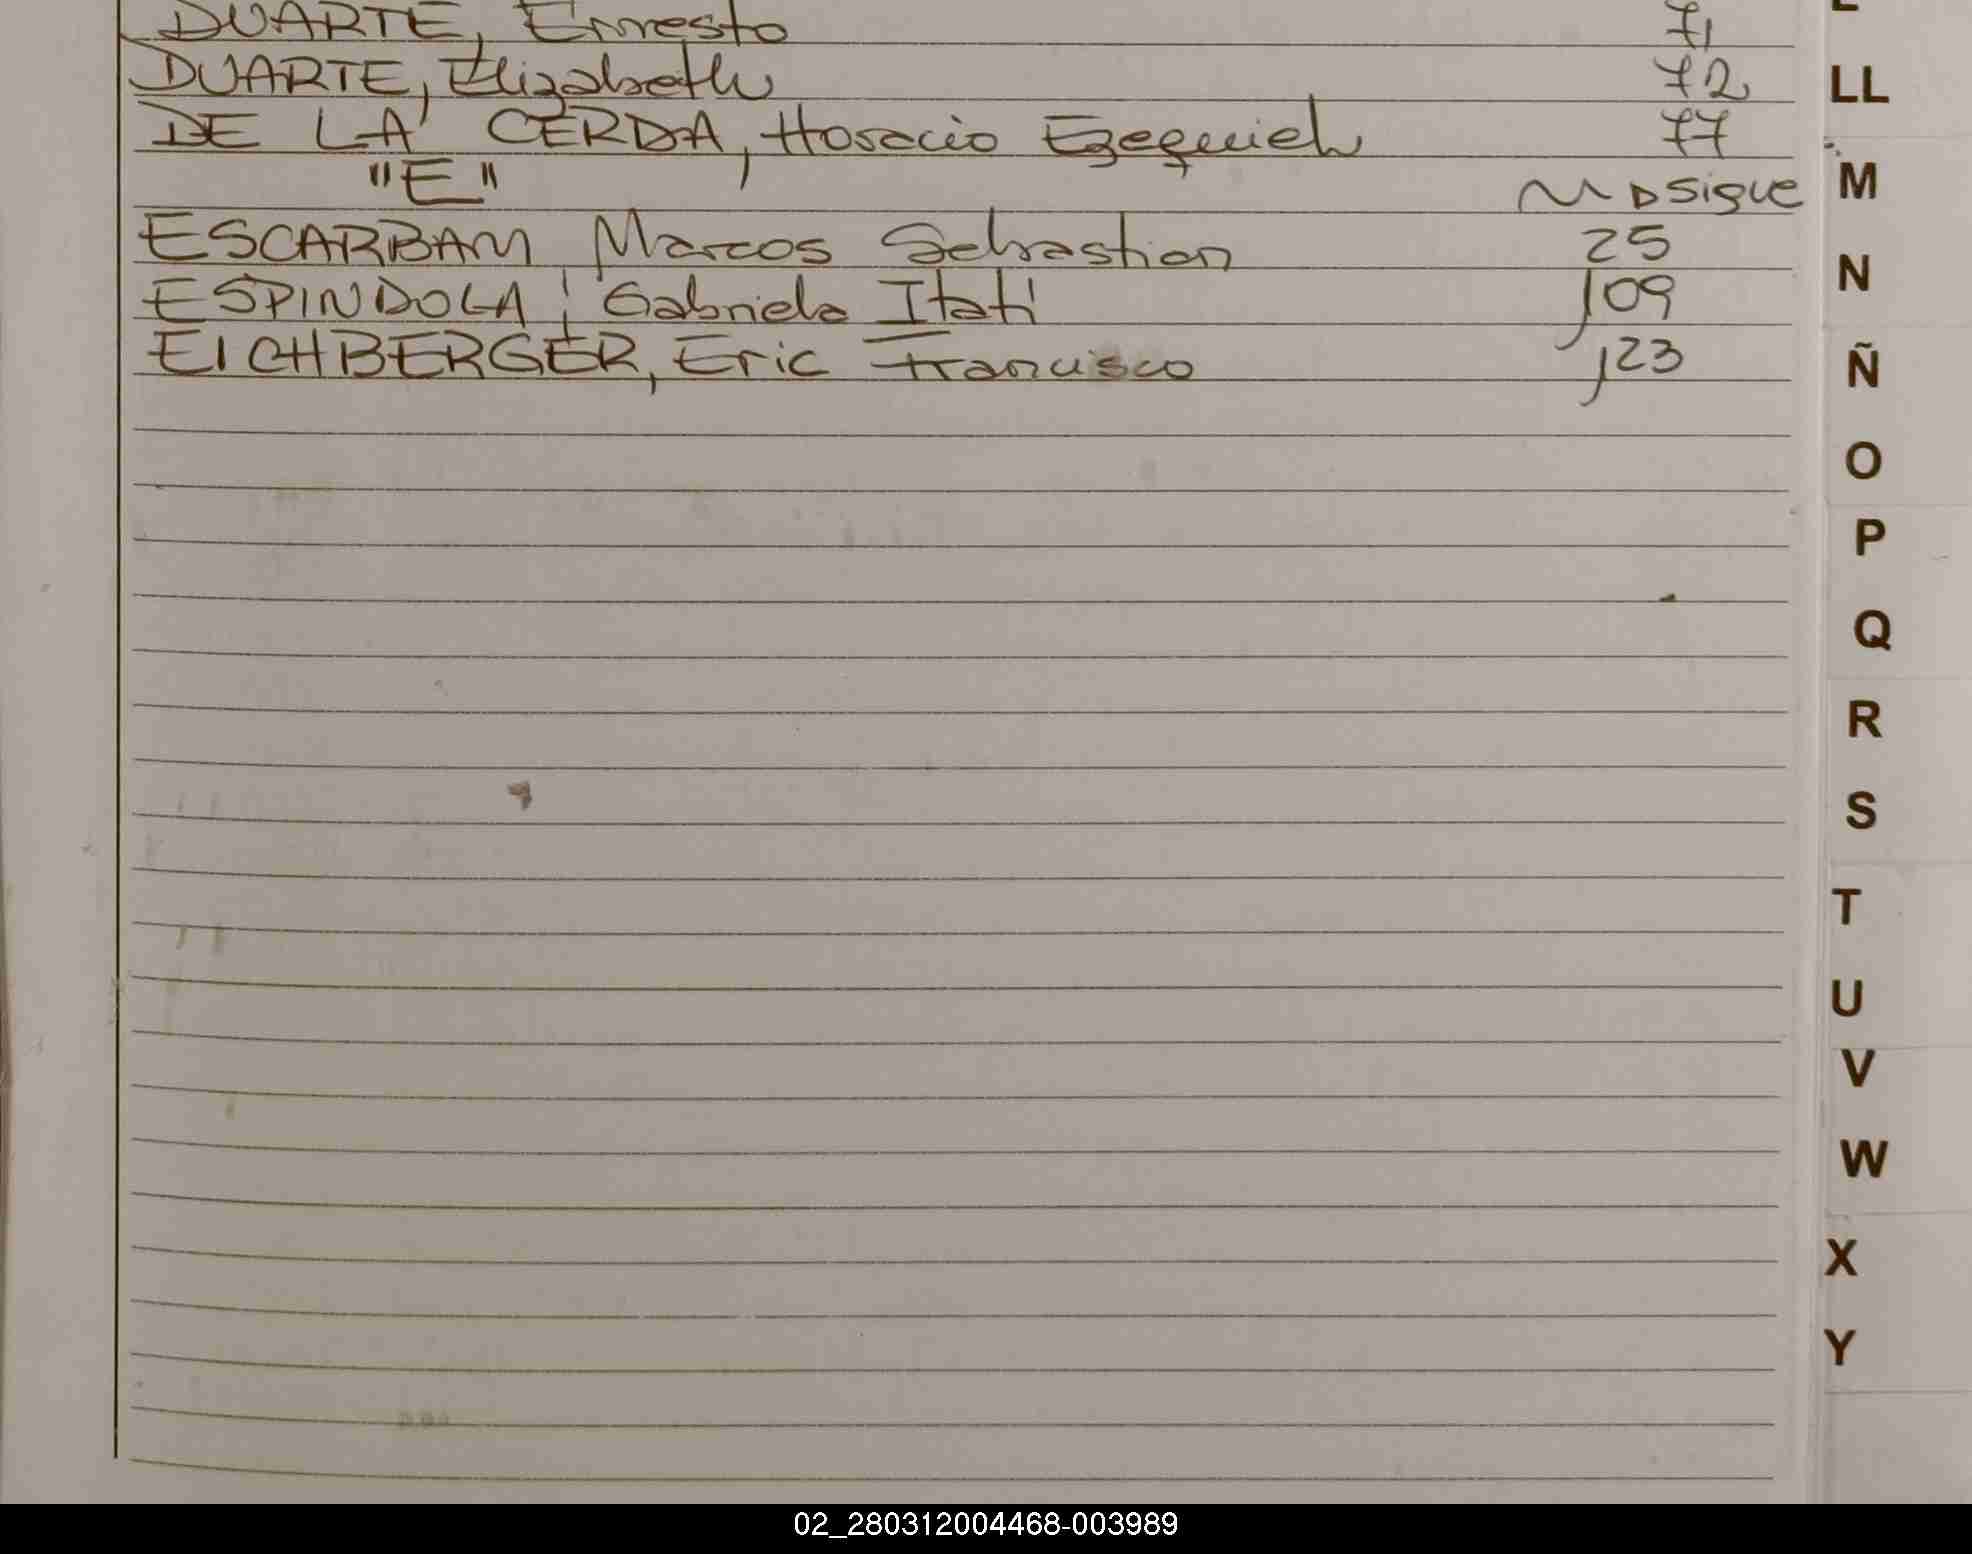 DUARTE, Ernesto 71
DUARTE, Elizabeth 72
DE LA CERDA, Horacio Ezequiel 77
"E"
sigue
ESCARBAM, Marcos Sebastian 25
ESPINDOLA, Gabriela Itati 109
EICHBERGER, Eric Francisco 123
L
LL
M
N
Ñ
O
P
Q
R
S
T
U
V
W
X
Y
02_280312004468-003989